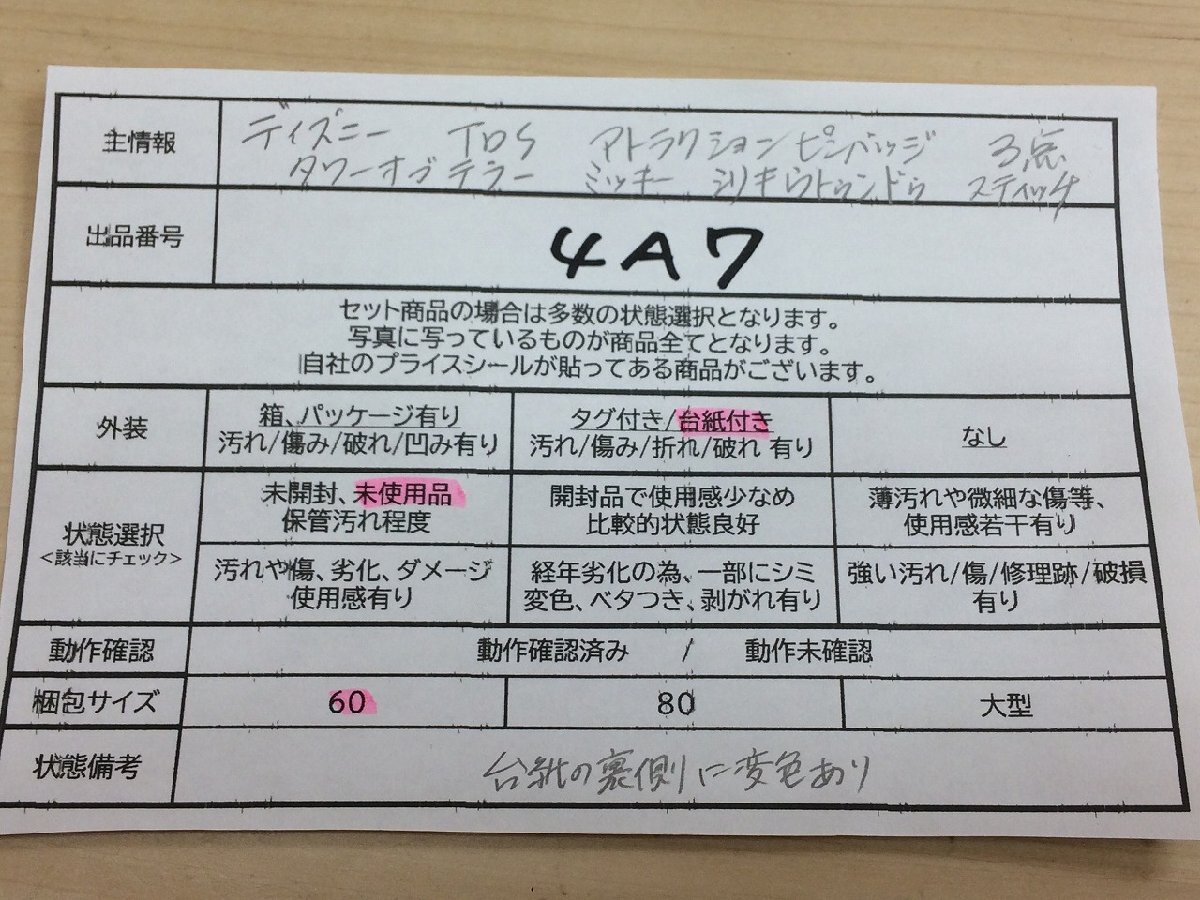 主情報
ディズニー TDS アトラクションピンバッジ 3点
タワーオブテラー ミッキー シリキウトゥンドゥ スティッチ
出品番号
4A7
セット商品の場合は多数の状態選択となります。
写真に写っているものが商品全てとなります。
自社のプライスシールが貼ってある商品がございます。
外装
箱、パッケージ有り
汚れ/傷み/破れ/凹み有り
タグ付き/台紙付き
汚れ/傷み/折れ/破れ 有り
なし
状態選択
<該当にチェック>
未開封、未使用品
保管汚れ程度
開封品で使用感少なめ
比較的状態良好
薄汚れや微細な傷等、
使用感若干有り
汚れや傷、劣化、ダメージ
使用感有り
経年劣化の為、一部にシミ
変色、ベタつき、剥がれ有り
強い汚れ/傷/修理跡/破損
有り
動作確認
動作確認済み / 動作未確認
梱包サイズ
60
80
大型
状態備考
台紙の裏側に変色あり